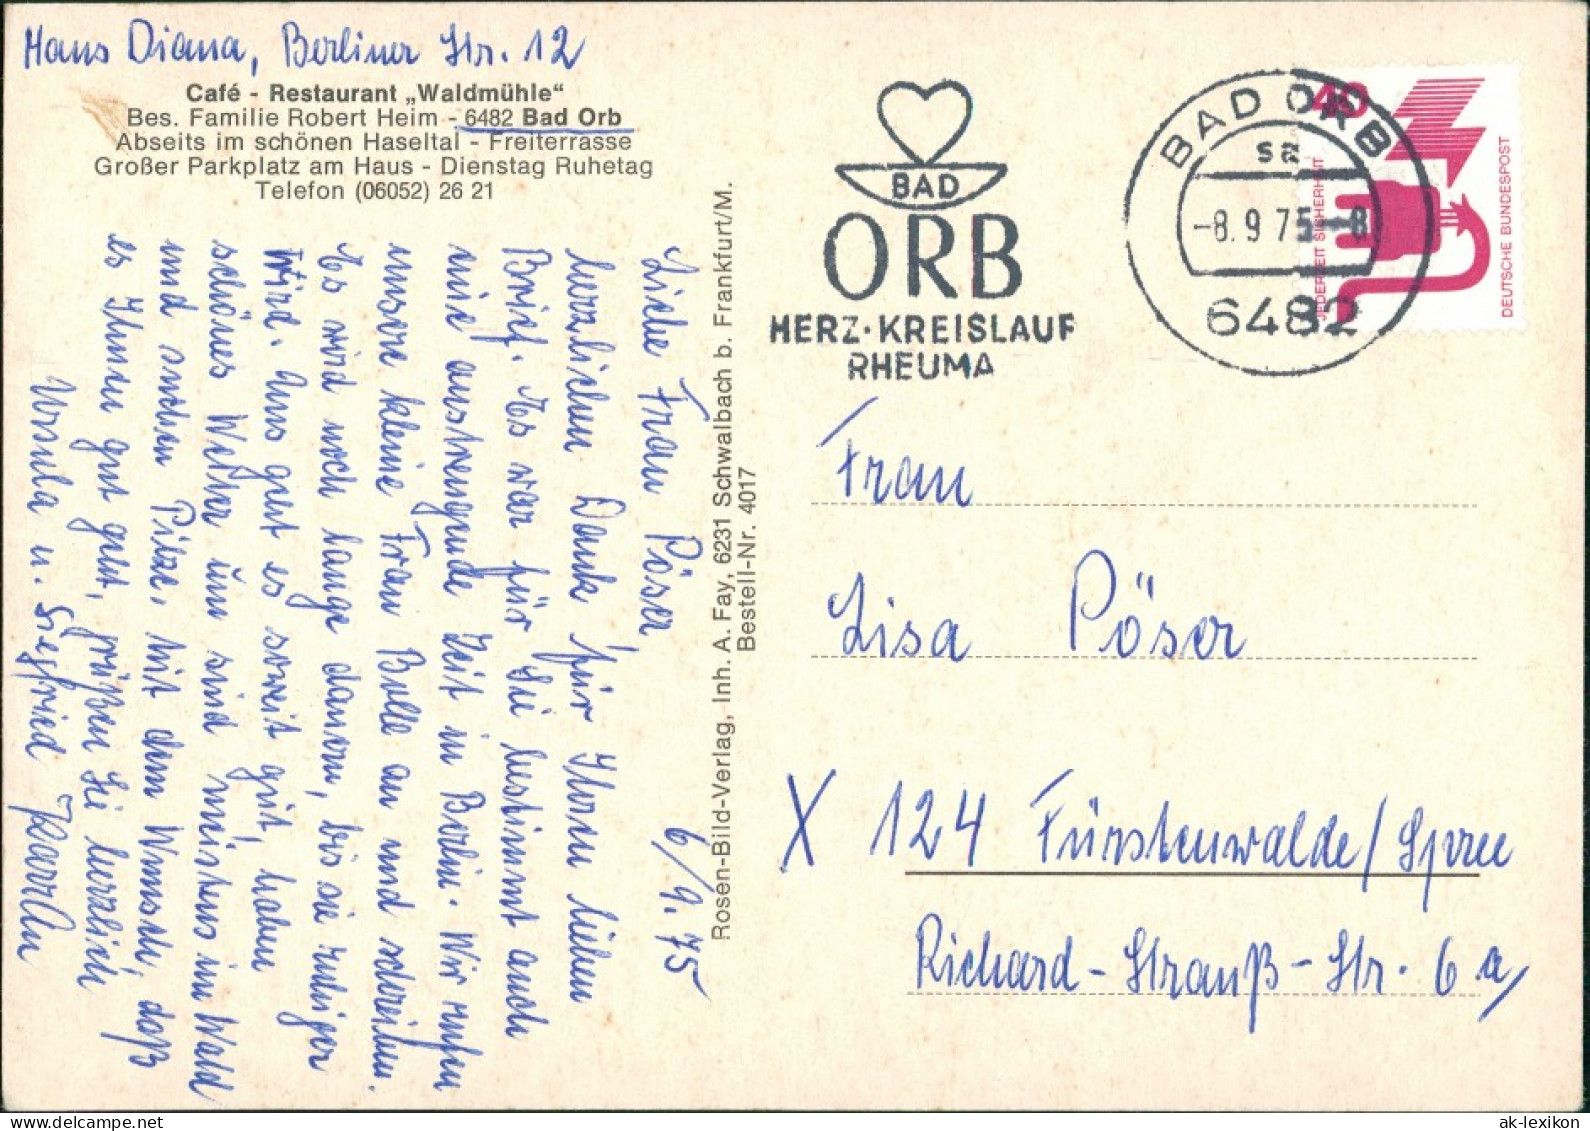 Haus Diana, Berliner Str. 12
Café - Restaurant „Waldmühle“
Bes. Familie Robert Heim - 6482 Bad Orb
Abseits im schönen Haseltal - Freiterrasse
Großer Parkplatz am Haus - Dienstag Ruhetag
Telefon (06052) 26 21
6/9.75
Liebe Frau Pöser,
herzlichen Dank für Ihren lieben
Brief. Es war für Sie bestimmt auch
eine anstrengende Zeit in Berlin. Wir rufen
unsere kleine Frau Bolle an und schreiben.
Es wird noch lange dauern, bis sie ruhiger
wird. Uns geht es soweit gut, haben
schönes Wetter und sind meistens im Wald
und suchen Pilze. Mit dem Wunsch, daß
es Ihnen gut geht, grüßen Sie herzlich
Ursula u. Siegfried
Rosen-Bild-Verlag, Inh. A. Fay, 6231 Schwalbach b. Frankfurt/M.
Bestell-Nr. 4017
BAD
ORB
HERZ·KREISLAUF
RHEUMA
BAD ORB
sa
-8.9.75-8
6482
40
JEDERZEIT SICHERHEIT
DEUTSCHE BUNDESPOST
Frau
Lisa Pöser
X 124 Fürstenwalde/Spree
Richard-Strauß-Str. 6a,
ak-lexikon